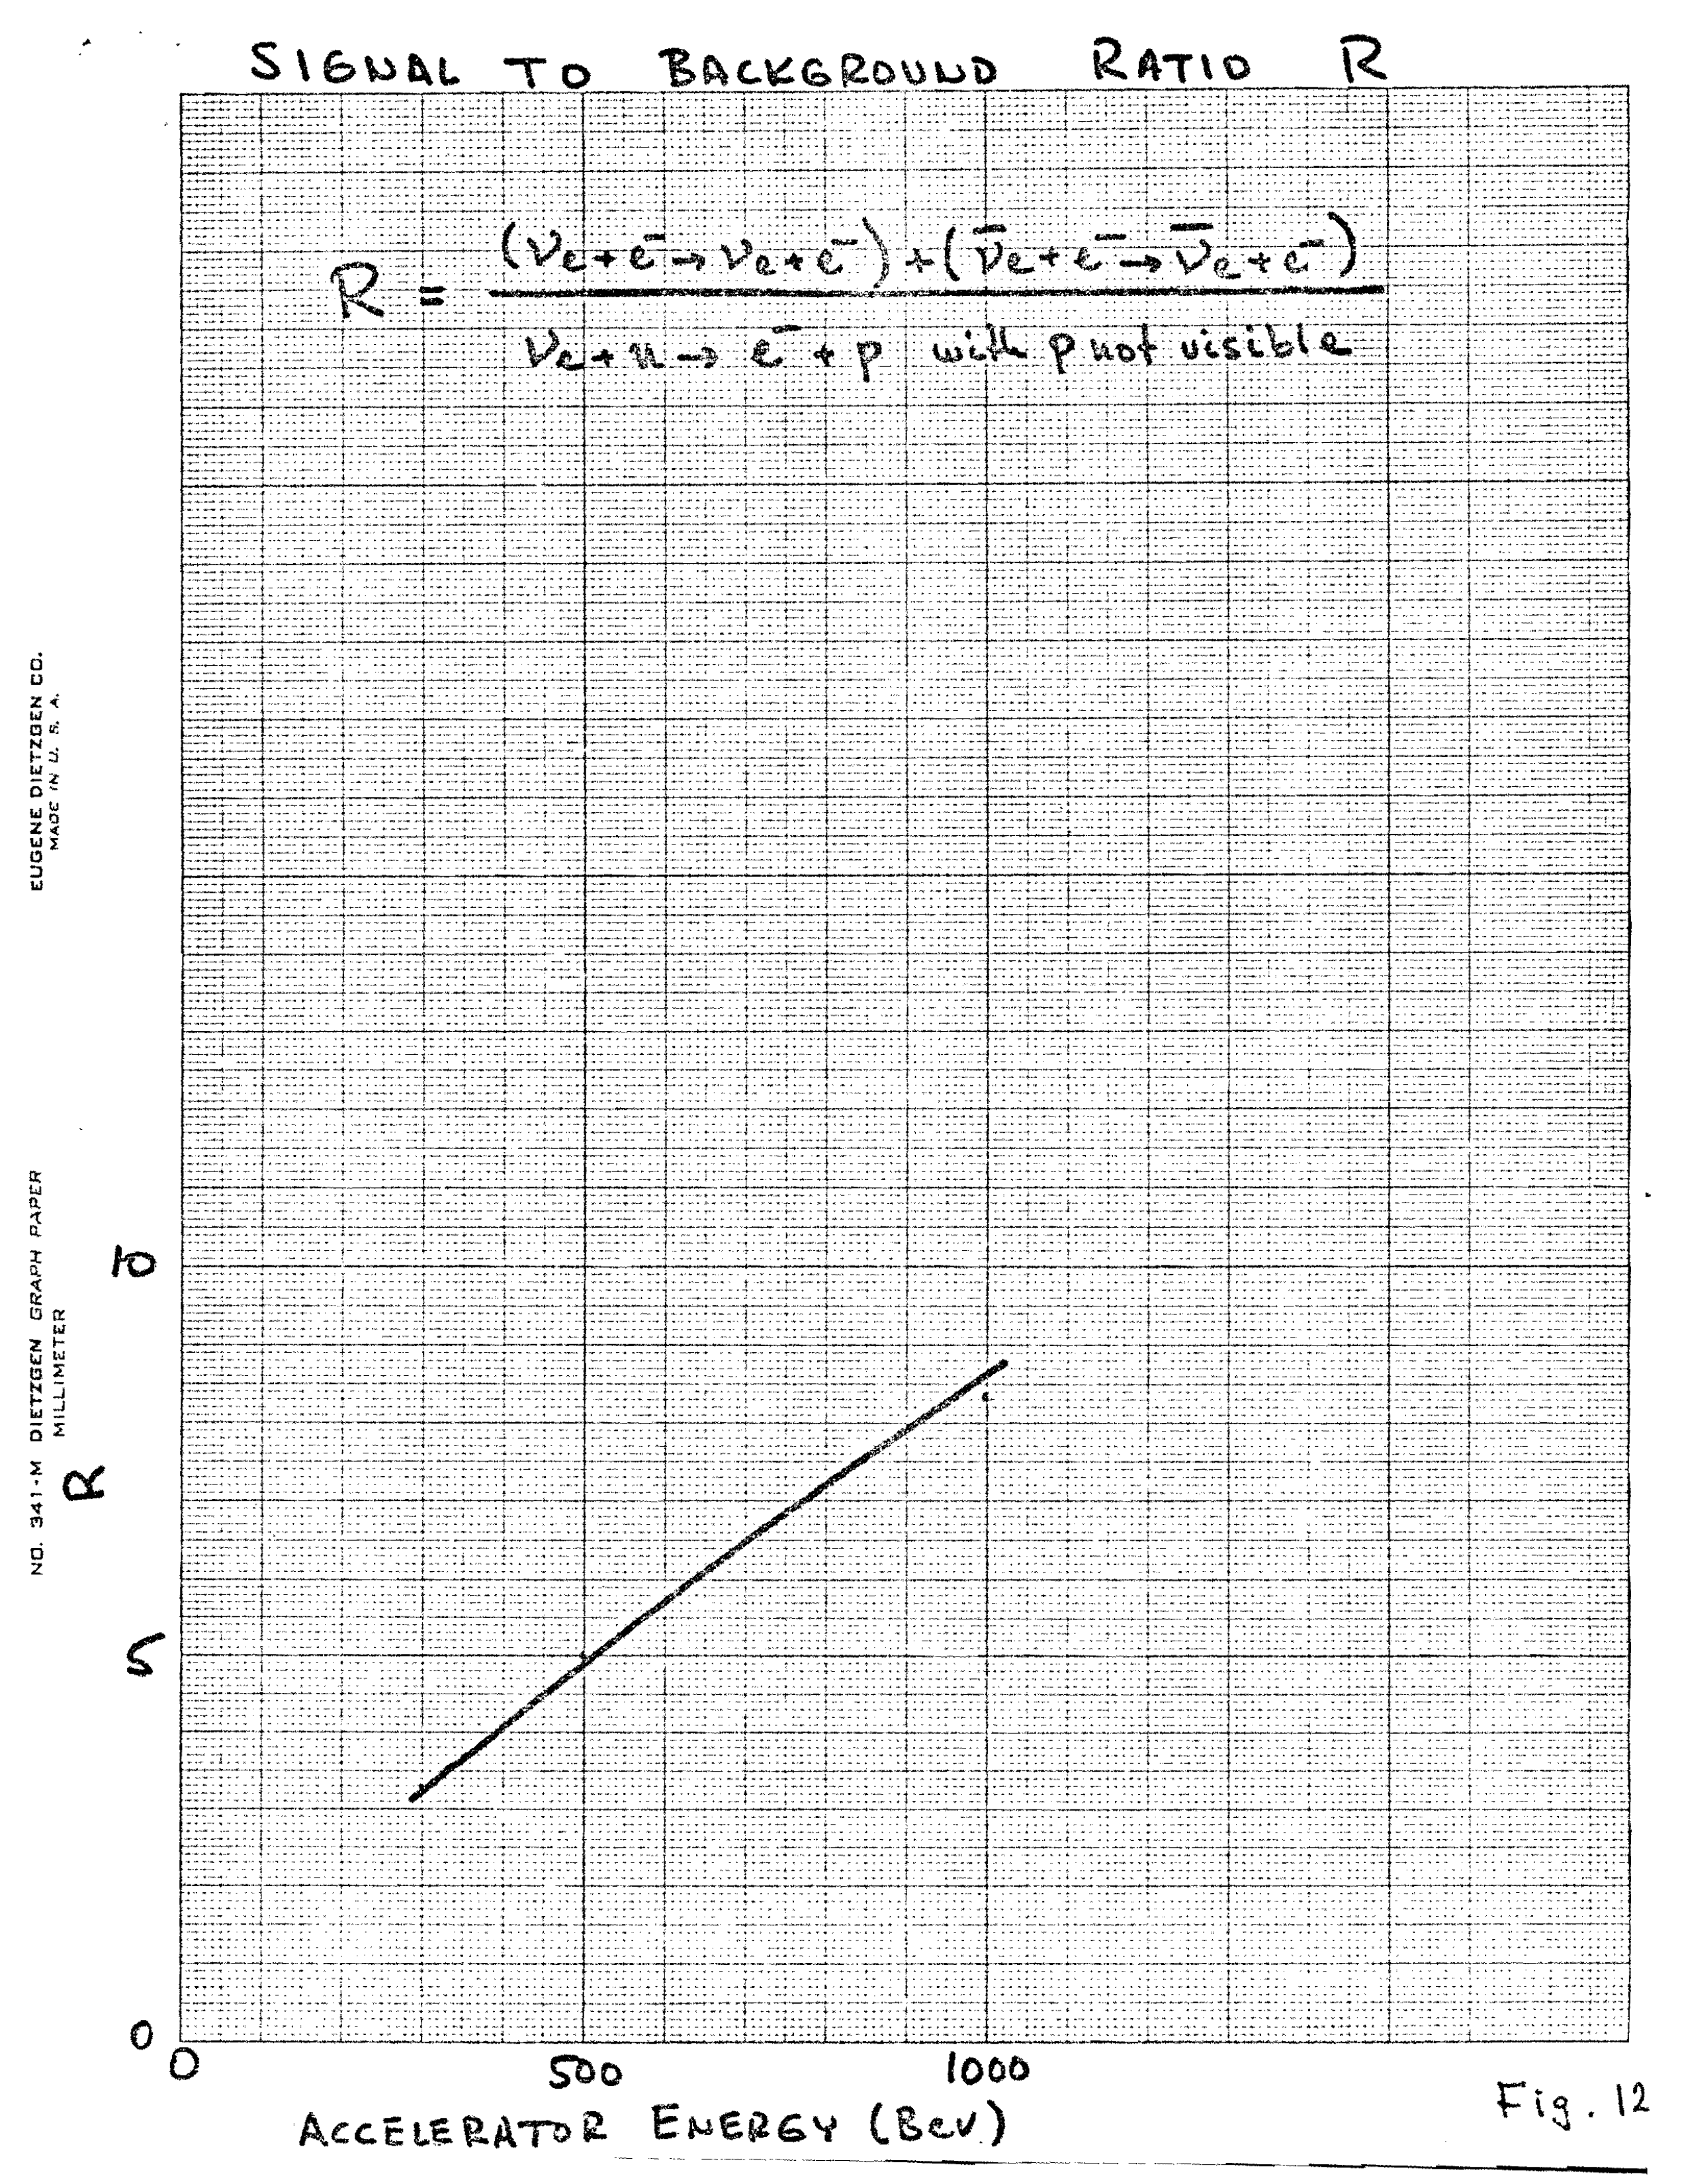 SIGNAL TO BACKGROUND RATIO R
R = (νe + e⁻ → νe + e⁻) + (ν̄e + e⁻ → ν̄e + e⁻)
νe + n → e⁻ + p with p not visible
EUGENE DIETZGEN CO.
MADE IN U. S. A.
NO. 341-M DIETZGEN GRAPH PAPER
MILLIMETER
10
R
5
0
0 500 1000
ACCELERATOR ENERGY (BeV)
Fig. 12